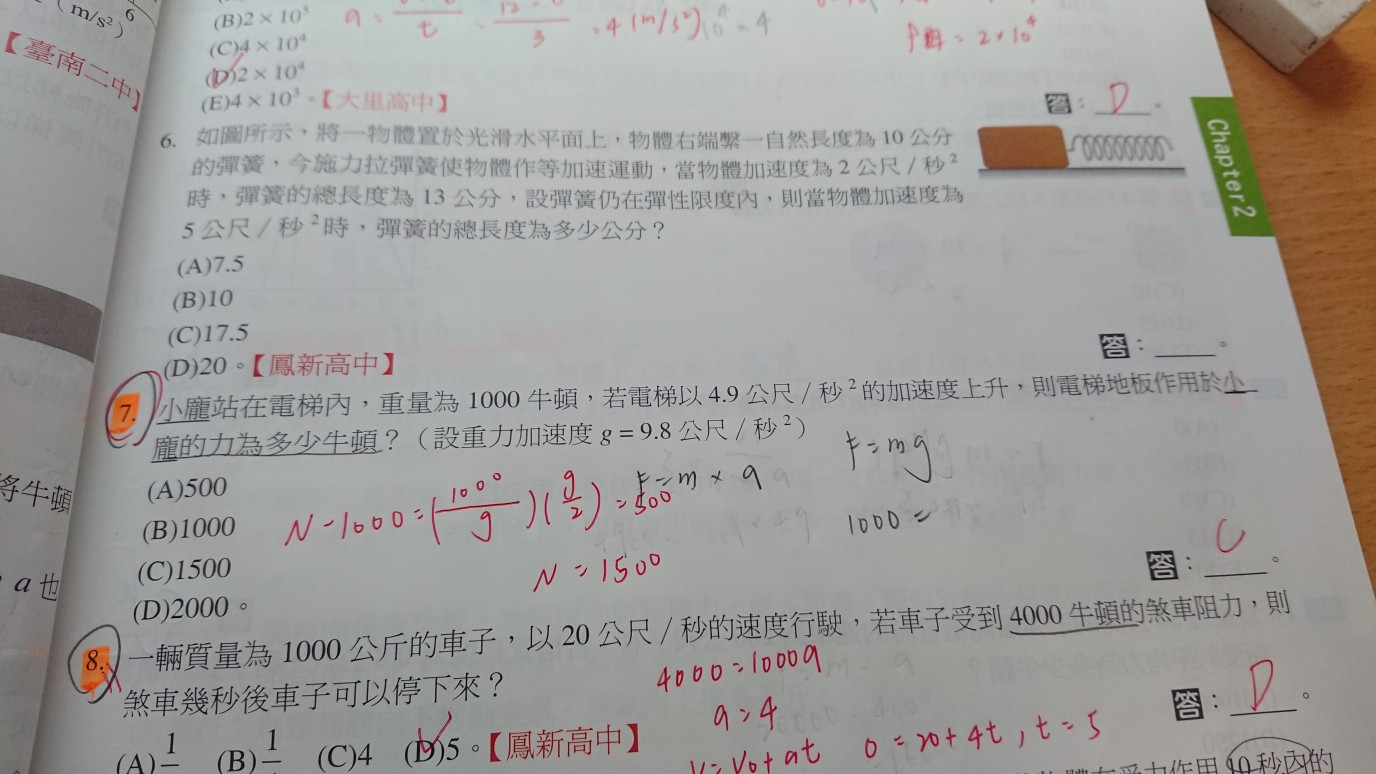 (m/s²) 6
【臺南二中】
將牛頓
a 也
(B)2 × 10⁵
(C)4 × 10⁴
(D)2 × 10⁴
(E)4 × 10³。【大里高中】
t
3
= 4 (m/s²)
= 2×10⁴
答：D。
Chapter 2
6. 如圖所示，將一物體置於光滑水平面上，物體右端繫一自然長度為 10 公分
的彈簧，今施力拉彈簧使物體作等加速運動，當物體加速度為 2 公尺／秒²
時，彈簧的總長度為 13 公分，設彈簧仍在彈性限度內，則當物體加速度為
5 公尺／秒²時，彈簧的總長度為多少公分？
(A)7.5
(B)10
(C)17.5
(D)20。【鳳新高中】
答：____。
7. 小龐站在電梯內，重量為 1000 牛頓，若電梯以 4.9 公尺／秒²的加速度上升，則電梯地板作用於小
龐的力為多少牛頓？（設重力加速度 g = 9.8 公尺／秒²）
(A)500
(B)1000
(C)1500
(D)2000。
F = m × a
F = mg
1000 =
N - 1000 = (1000/g)(g/2) = 500
N = 1500
答：C。
8. 一輛質量為 1000 公斤的車子，以 20 公尺／秒的速度行駛，若車子受到 4000 牛頓的煞車阻力，則
煞車幾秒後車子可以停下來？
4000 = 1000a
a = 4
答：D。
(A) 1 (B) 1 (C)4 (D)5。【鳳新高中】
V = V₀ + at 0 = 20 + 4t , t = 5
10 秒內的